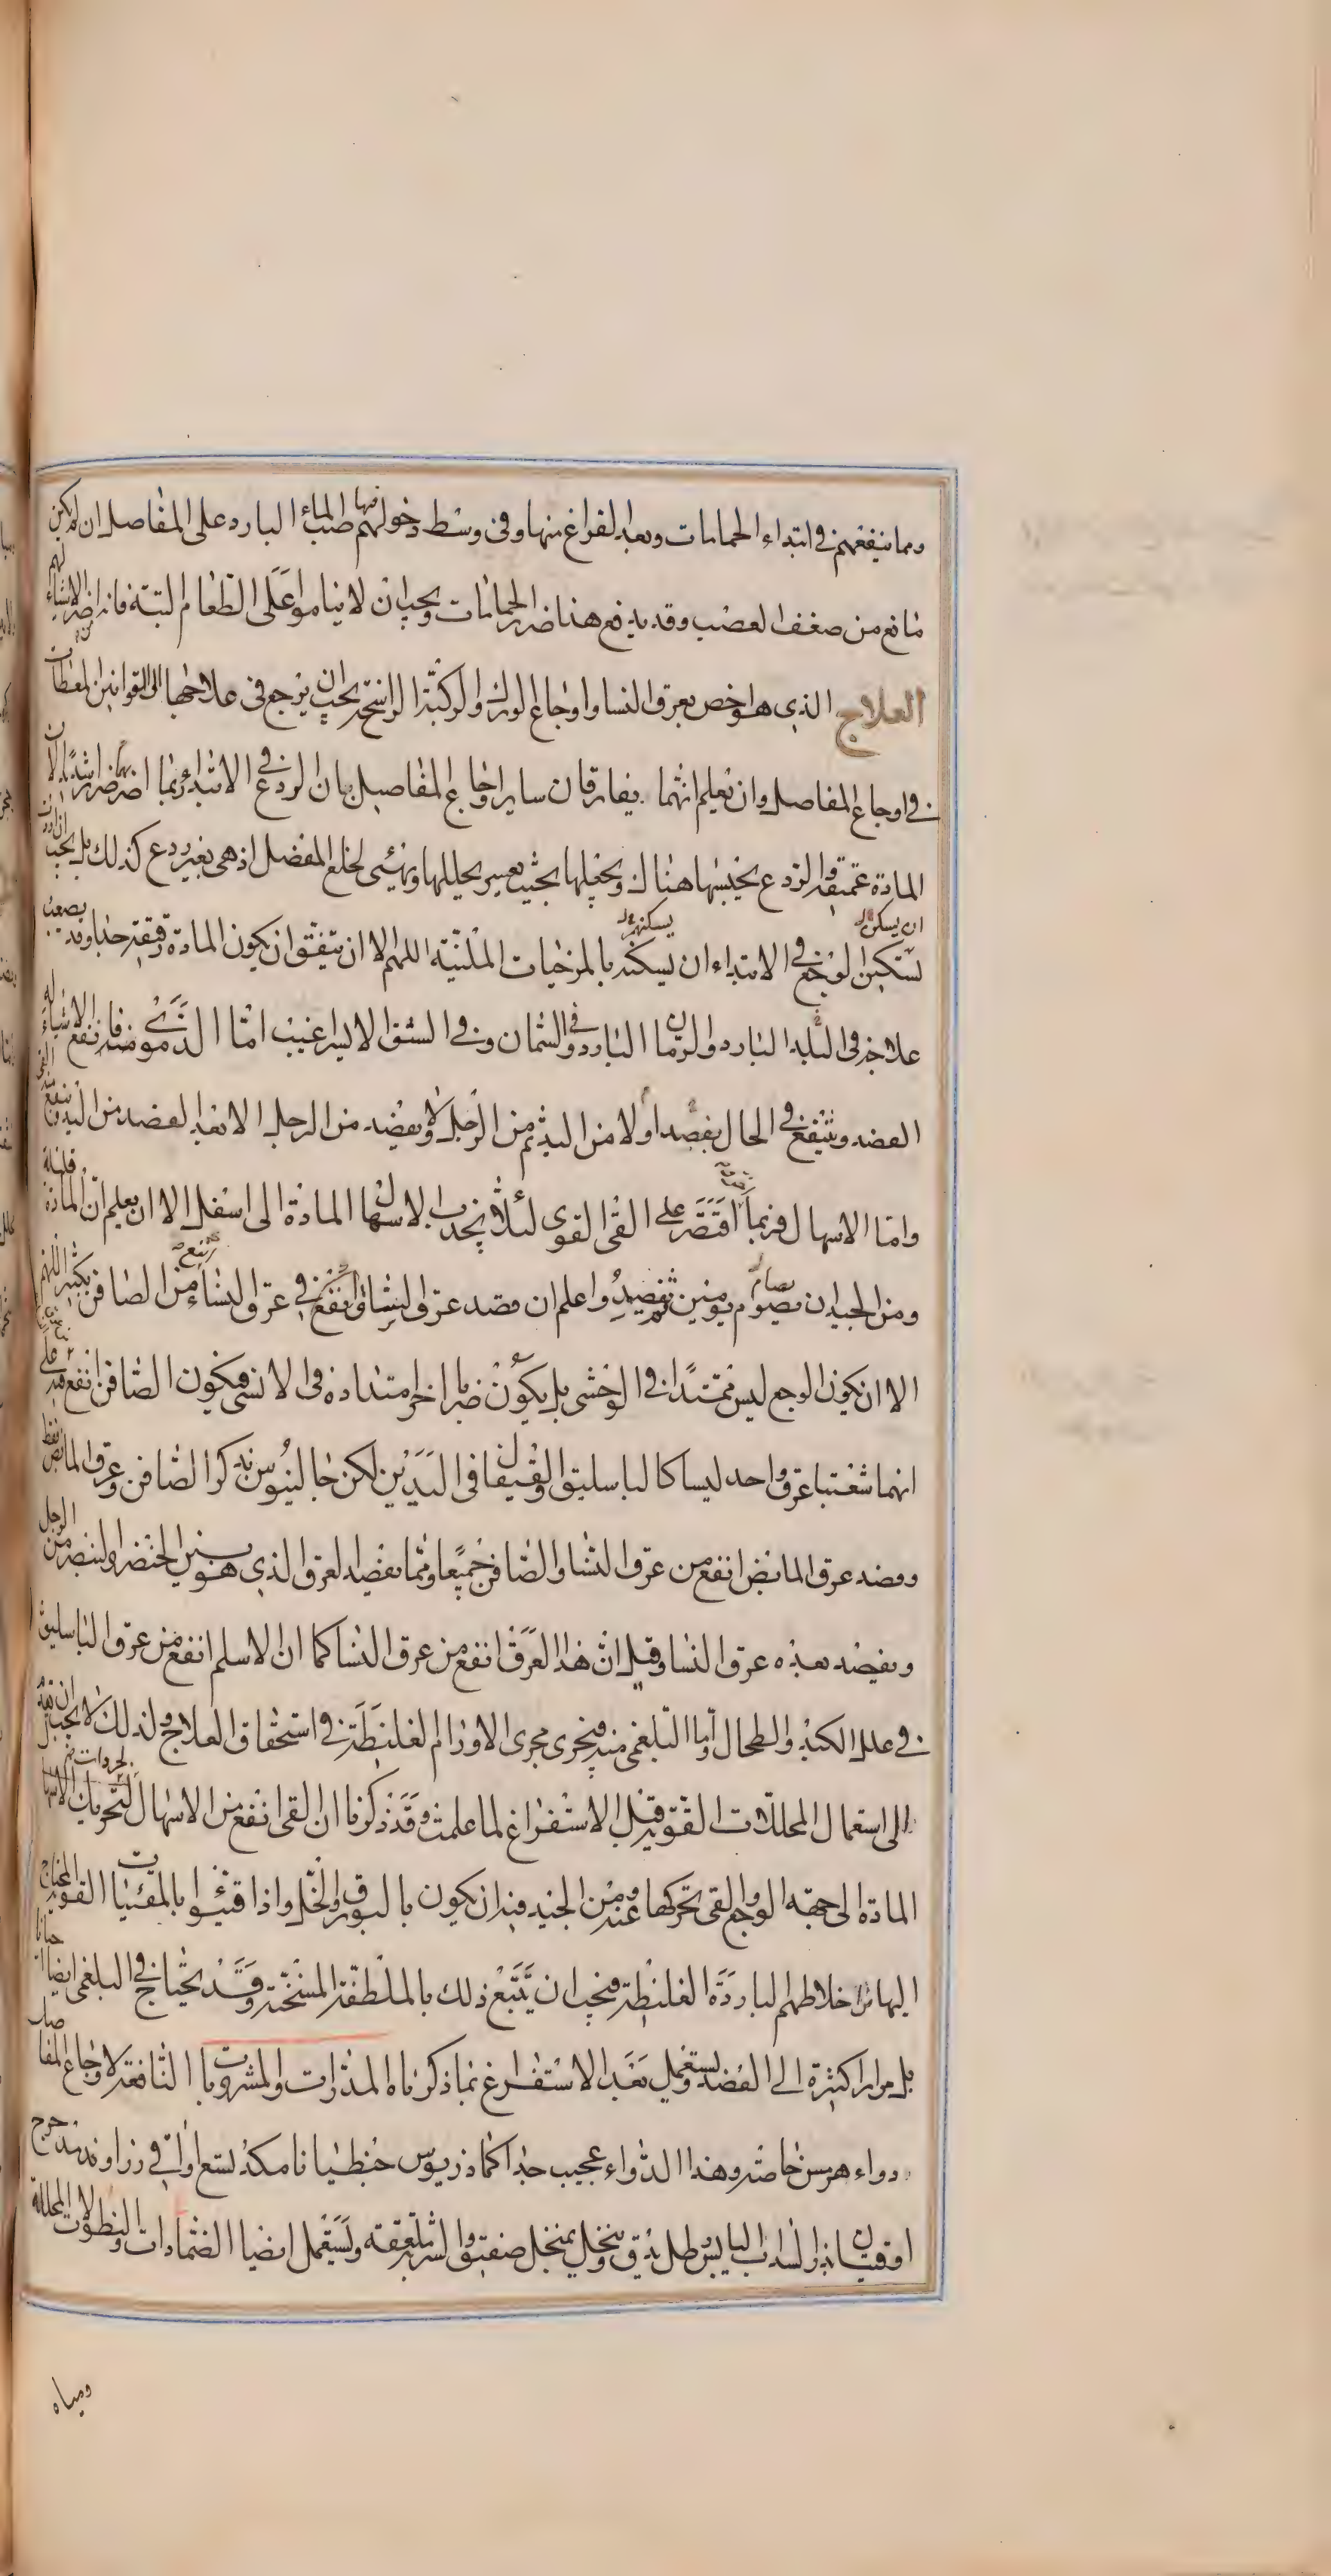 ومما ينفعهم في ابتداء الحمامات وبعد الفراغ منها وفي وسط دخولهم فيها صب الماء البارد على المفاصل ان لم يكن لهم
مانع من ضعف العصب وقد يدفع هذا ضرر الحمامات ويجب ان لا يناموا على الطعام البتة فانه اضر الاشياء
العلاج الذي هو اخص بعرق النسا واوجاع الورك والركبة الراسخة يجب ان يرجع في علاجها الى القوانين المعطات
في اوجاع المفاصل وان تعلم انهما يفارقان ساير اوجاع المفاصل بان الردع في الابتداء ربما اضر بهما ضررا شديدا لان
المادة عميقة والردع يحبسها هناك ويجعلها بحيث يعسر تحليلها وتهيئ لخلع المفصل اذ هي بغير ردع كذلك بل يجب ان اردت
ان يسكن يسكنهم
تسكين الوجع في الابتداء ان يسكنه بالمرخيات الملينة اللهم الا ان يتفق ان يكون المادة رقيقة جدا وقد يصعب
علاجه في البلد البارد والزمان البارد وفي السمان وفي الشق الايسر اغيب اما الدموي منه فانفع الاشياء له
الفصد وينتفع في الحال بفصد اولا من اليد ثم من الرجل ولا يفصد من الرجل الا بعد الفصد من اليد
واما الاسهال فربما اقتصر على القى القوى لئلا يجذب الاسهال المادة الى اسفل الا ان يعلم ان المادة قليلة
ومن الجيد ان يصوم يومين ثم يفصد واعلم ان فصد عرق النسا انفع في عرق النساء من الصافن بكثير اللهم
الا ان يكون الوجع ليس ممتدا في الوحشى بل يكون ضربا اخر امتداده في الانسى فيكون الصافن انفع فيه على
انهما شعبتا عرق واحد ليسا كالباسليق والقيفال في اليدين لكن جالينوس يذكر الصافن وعرق المابض فقط
وفصد عرق المابض انفع من عرق النسا والصافن جميعا ومما يفصد العرق الذي هو بين الخنصر والبنصر من الرجل
ويفصد بعده عرق النسا وقيل ان هذا العرق انفع من عرق النسا كما ان الاسلم انفع من عرق الباسليق
في علل الكبد والطحال واما البلغمى منه فيجرى مجرى الاورام الغليظة في استحقاق العلاج ولذلك لا يجب ان
الى استعمال المحللات القوية قبل الاستفراغ لما علمت وقد ذكرنا ان القى انفع من الاسهال لتحريك الاسهال
المادة الى جهة الوجع والقى تحركها عنه ومن الجيد فيه ان يكون بالبورق والخل واذا قيئوا بالمقيئات القوية المحتاج
اليها من اخلاطهم الباردة الغليظة فيجب ان يتبع ذلك بالملطفة المسخنة وقد يحتاج في البلغمى ايضا احيانا
بل مرارا كثيرة الى الفصد ويستعمل بعد الاستفراغ بما ذكرناه المدرات والمشروبات النافعة لاوجاع المفاصل
دواء هرمس خاصة وهذا الدواء عجيب جدا كماذريوس جنطيانا من كل تسع اواقي زراوند مدحرج
اوقيتان بزر السداب اليابس رطل يدق وينخل بمنخل صفيق والشربة ملعقة ويستعمل ايضا الضمادات والنطولات المحللة
ومياه